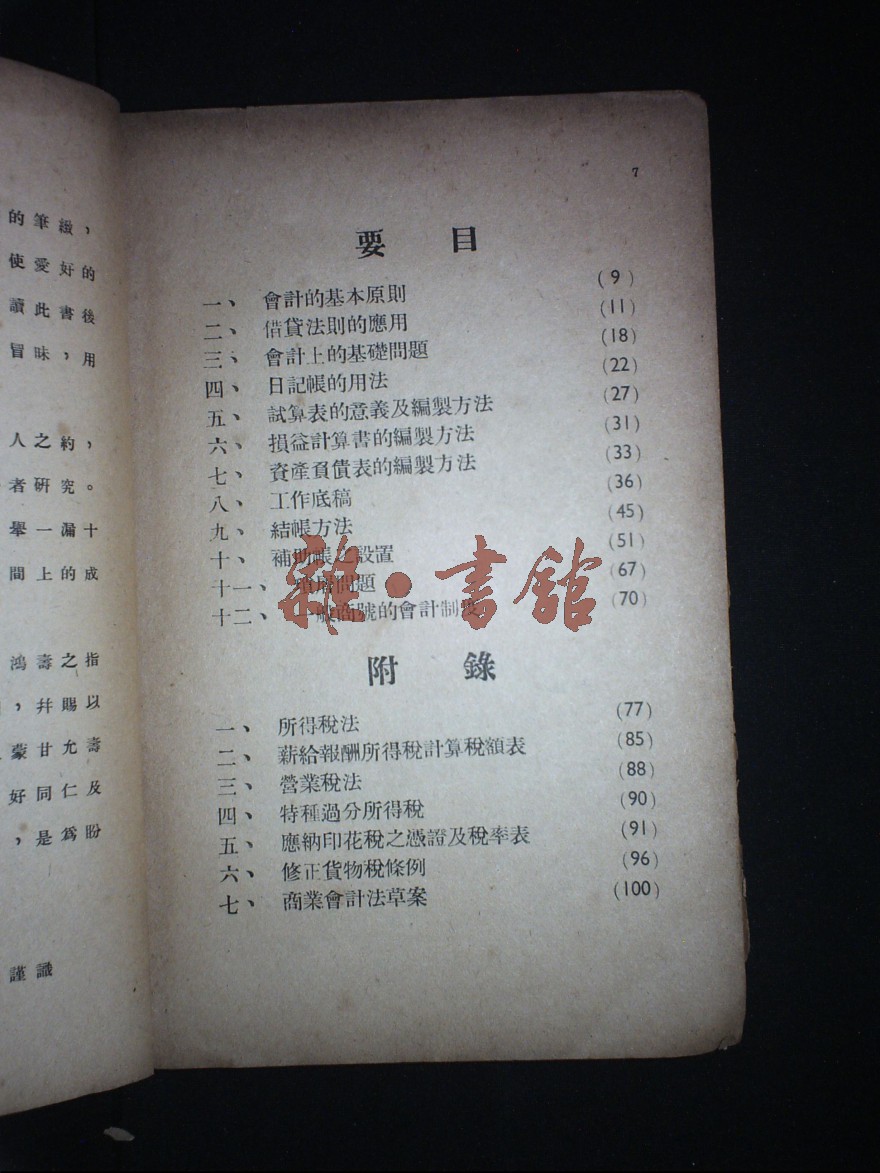 的筆緻，
使愛好的
讀此書後
冒昧，用
人之約，
者研究。
舉一漏十
間上的成
鴻壽之指
，幷賜以
蒙甘允壽
好同仁及
，是爲盼
謹識
7
要目
一、會計的基本原則 (9)
二、借貸法則的應用 (11)
三、會計上的基礎問題 (18)
四、日記帳的用法 (22)
五、試算表的意義及編製方法 (27)
六、損益計算書的編製方法 (31)
七、資產負債表的編製方法 (33)
八、工作底稿 (36)
九、結帳方法 (45)
十、補助帳之設置 (51)
十一、問題 (67)
十二、一般商號的會計制度 (70)
雜·書館
附錄
一、所得稅法 (77)
二、薪給報酬所得稅計算稅額表 (85)
三、營業稅法 (88)
四、特種過分所得稅 (90)
五、應納印花稅之憑證及稅率表 (91)
六、修正貨物稅條例 (96)
七、商業會計法草案 (100)